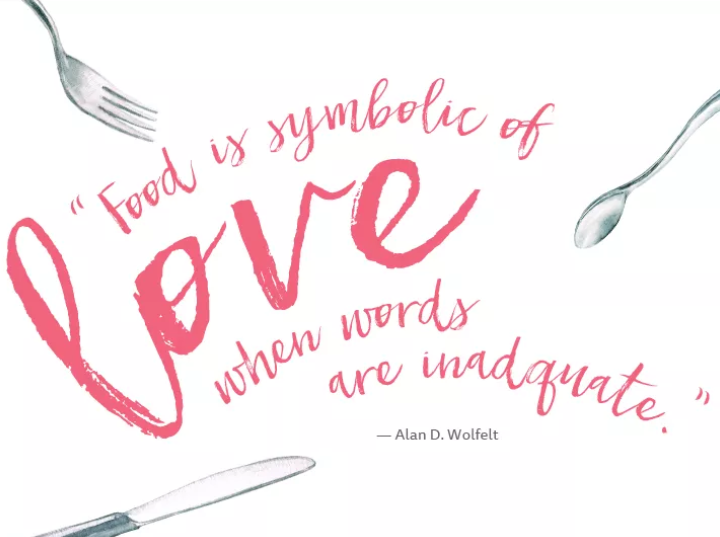 “Food is symbolic of
love
when words
are inadquate.”
— Alan D. Wolfelt